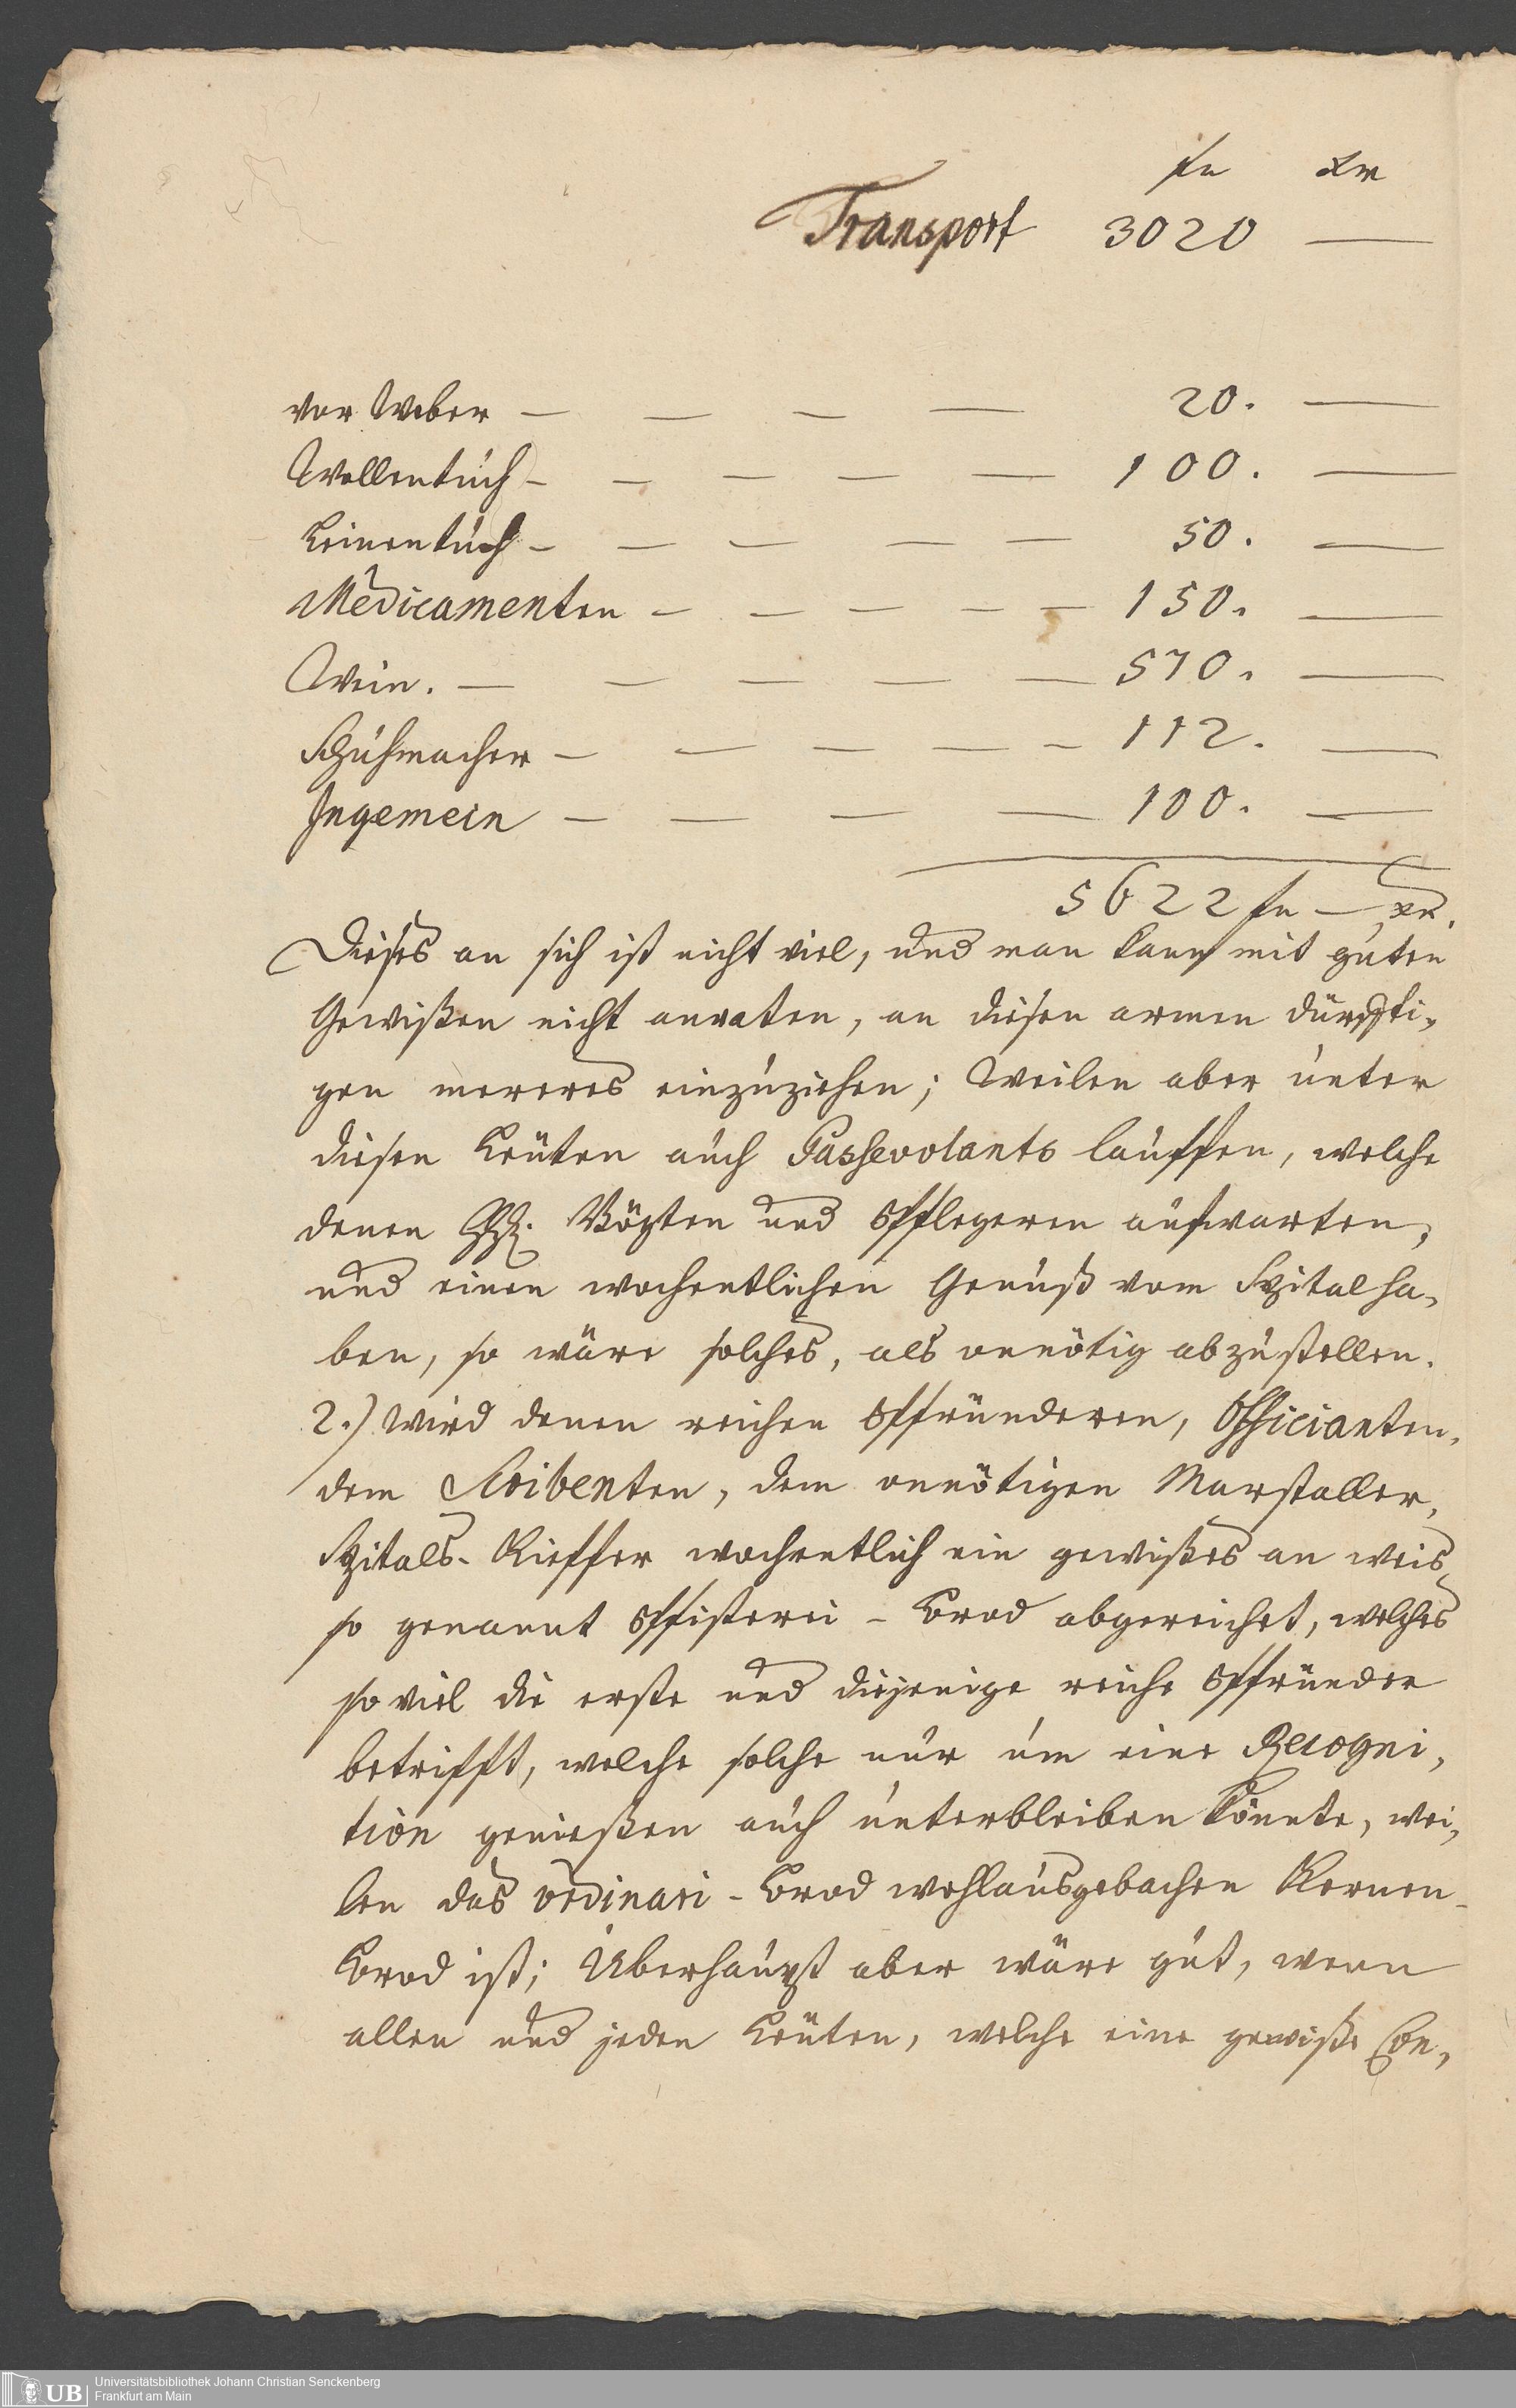 fl xr
Transport 3020 —
vor Weber — — — — 20. —
Wollentuch — — — — — 100. —
Leinentuch — — — — — 50. —
Medicamenten — — — — — 150. —
Wein. — — — — — 570. —
Schuhmacher — — — — — 112. —
Ingemein — — — — 100. —
5622 fl — xr.
Dieses an sich ist nicht viel, und man kann mit guten
Gewißen nicht anraten, an diesen armen dürffti-
gen mereres einzuziehen; Weilen aber unter
diesen Leuten auch Passevolants lauffen, welche
denen HH. Vögten und Pflegeren aufwarten,
und einen wochentlichen Genuß vom Spital ha-
ben, so wäre solches, als onnötig abzustellen.
2.) Wird denen reichen Pfründeren, Officianten,
dem Scribenten, dem onnötigen Marstaller,
Spitals-Kieffer wochentlich ein gewißes an weis
so genannt Pfisterei-Brod abgereichet, welches
so viel die erste und diejenige reiche Pfründer
betrifft, welche solche nur um eine Recogni-
tion genießen auch unterbleiben könnte, wei-
len das ordinari-Brod wohlausgebachen Kernen-
Brod ist; Überhaupt aber wäre gut, wenn
allen und jeden Leuten, welche eine gewiße Con-
UB
Universitätsbibliothek Johann Christian Senckenberg
Frankfurt am Main